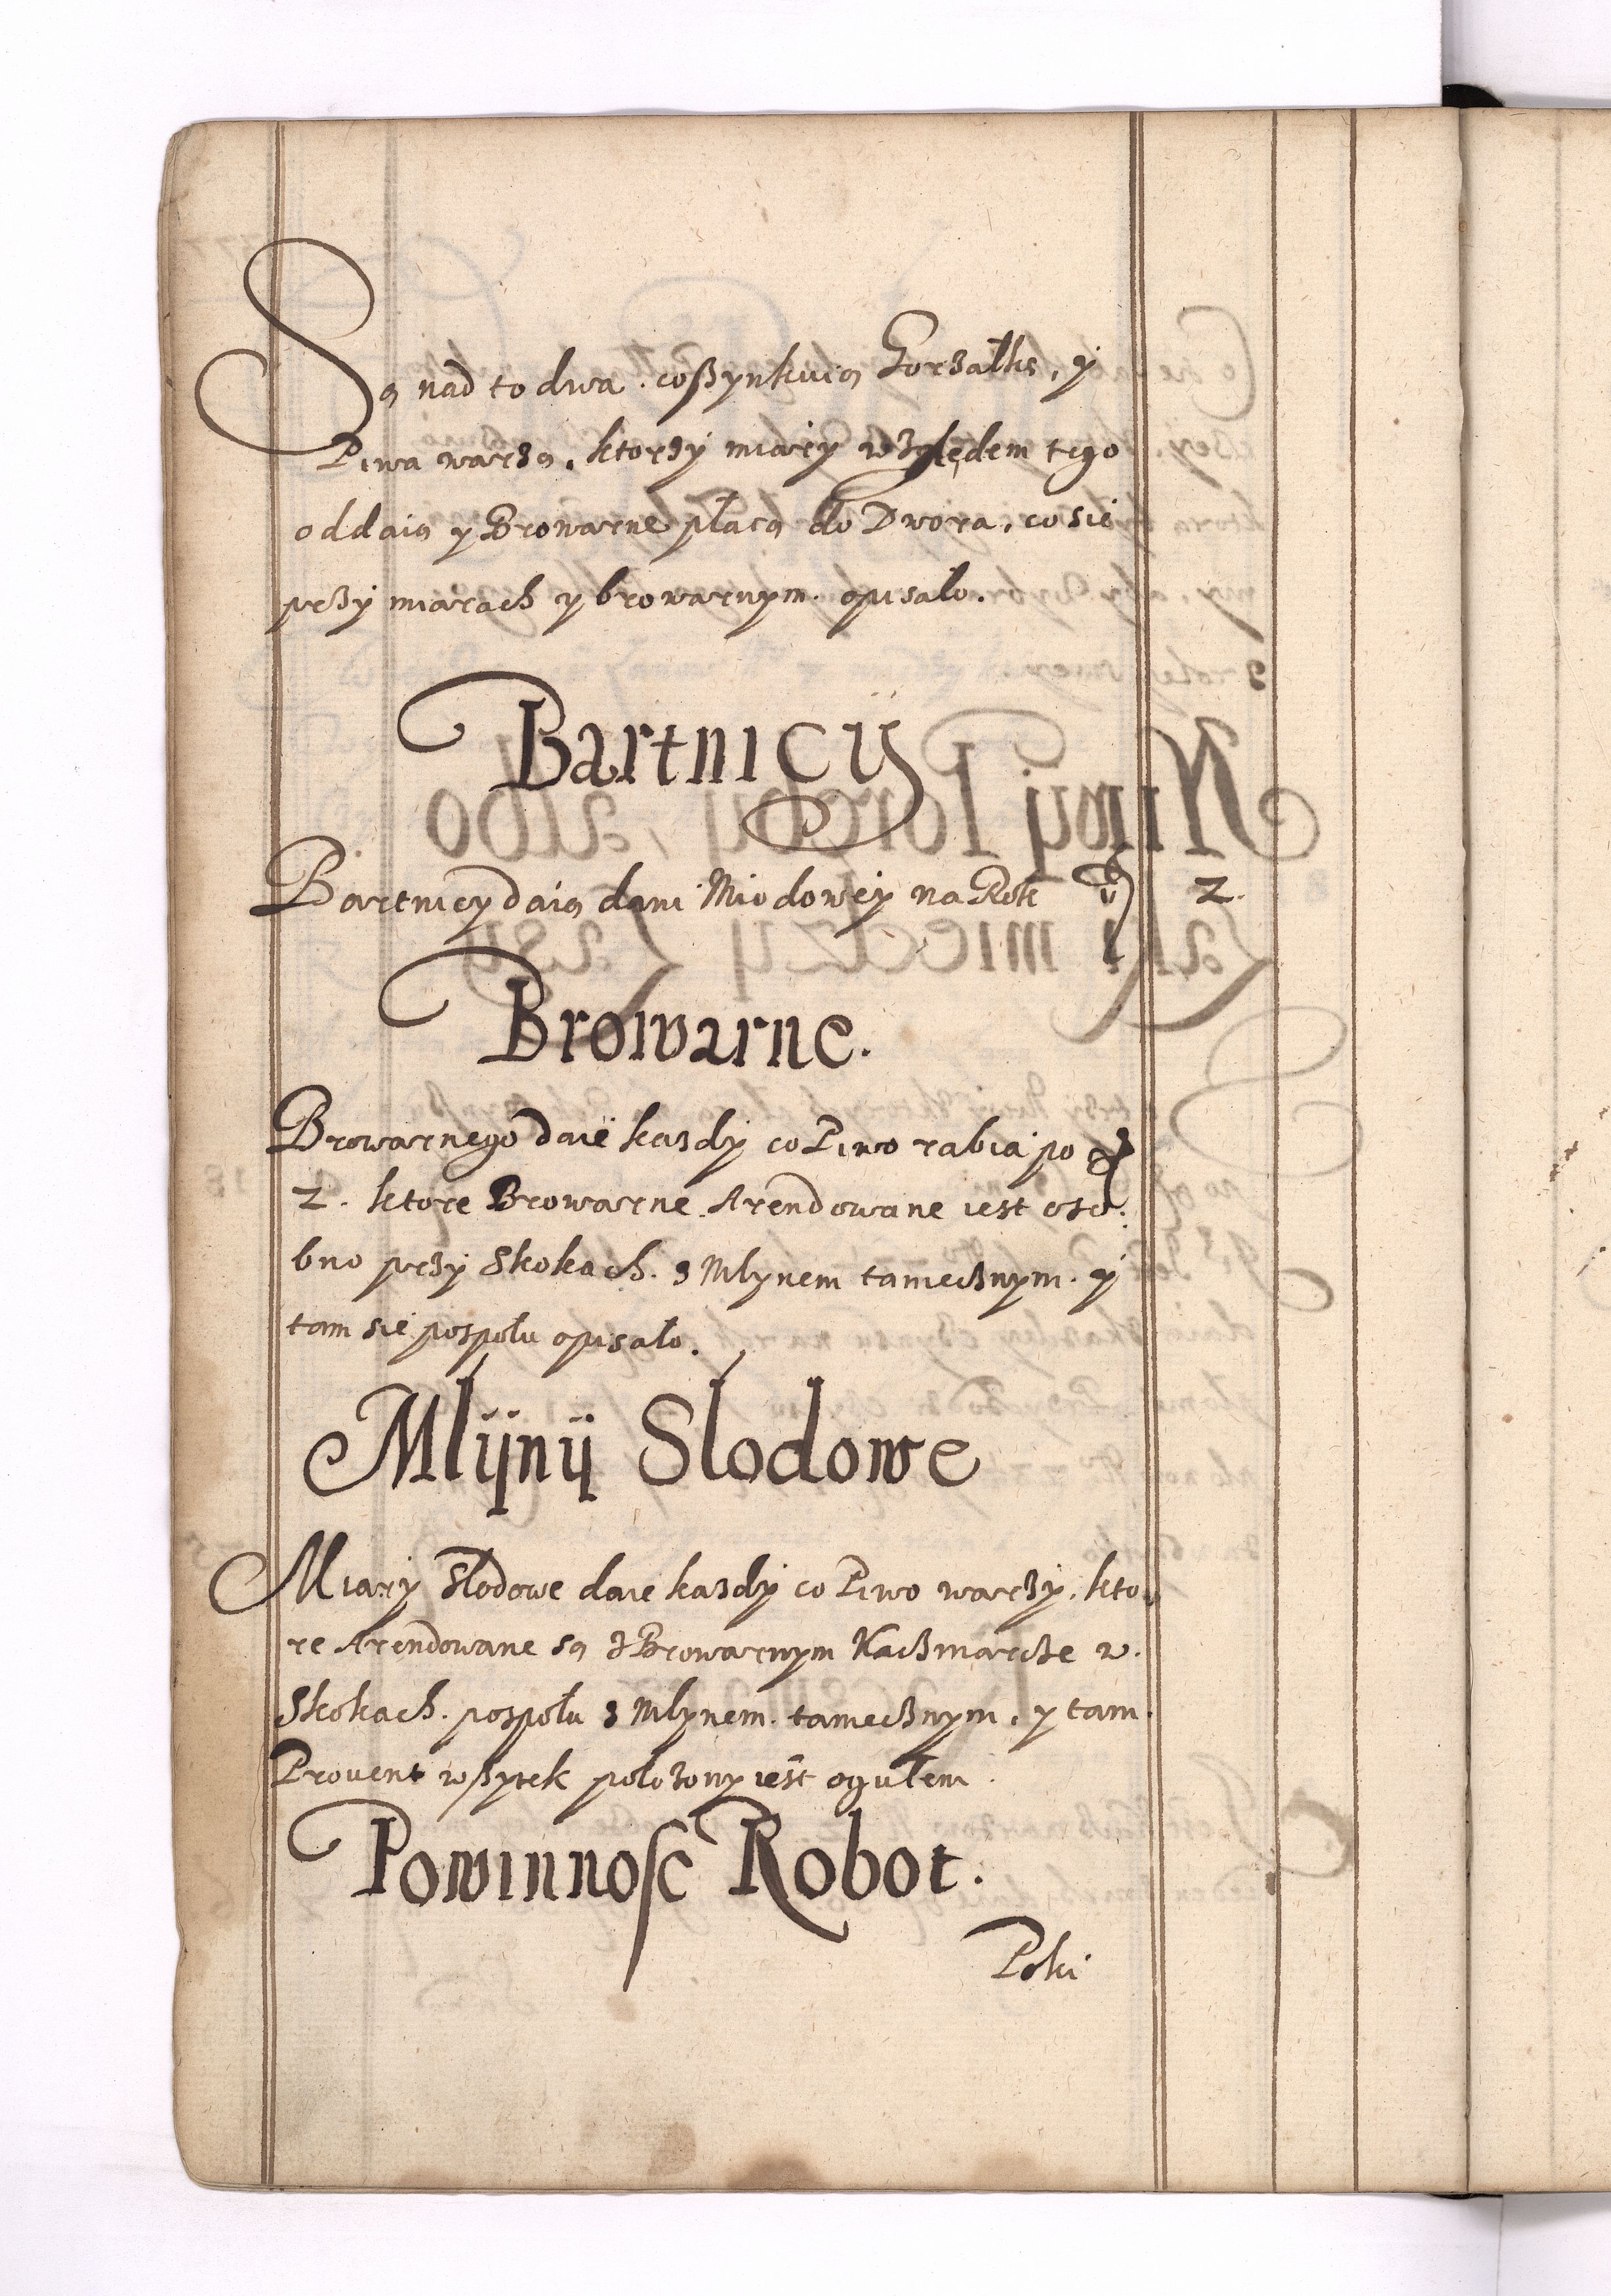 Są nad to dwa. coßynkuią Gorzałkę, y
Piwa warzą, ktorzÿ miarÿ względem tego
oddaią y Browarne płacą do Dwora, co się
przÿ miarach y browarnym. opisało.
Bartnicÿ
Bartnicy daią dani Miodoweÿ na Rok 2.
Browarne.
Browarnego daie kazdÿ co Piwo rabia po
2. ktore Browarne Arendowane iest oso
bno przÿ Skokach. z Mlynem tamecznym. y
tam się pospołu opisało.
Młÿnÿ Slodowe
Miarÿ Słodowe daie kazdÿ co Piwo warzÿ, kto
re Arendowane są z Browarnym Kaczmarcze w
Skokach. pospołu z Mlynem. tamecznym, y tam
Provent wßytek położony iest ogułem
Powinnosc Robot.
Poki